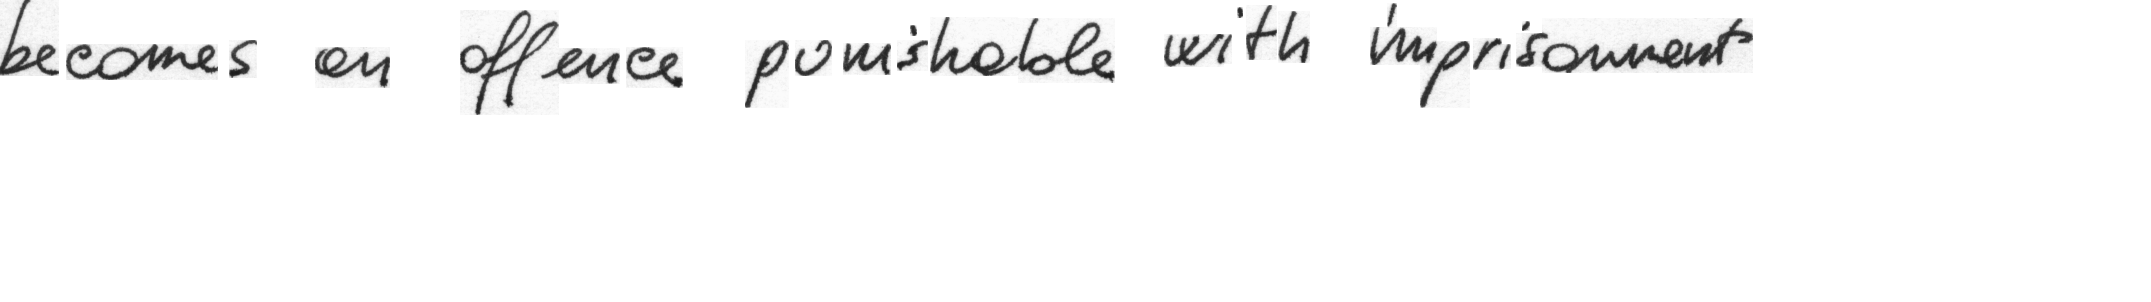 becomes an offence punishable with imprisonment